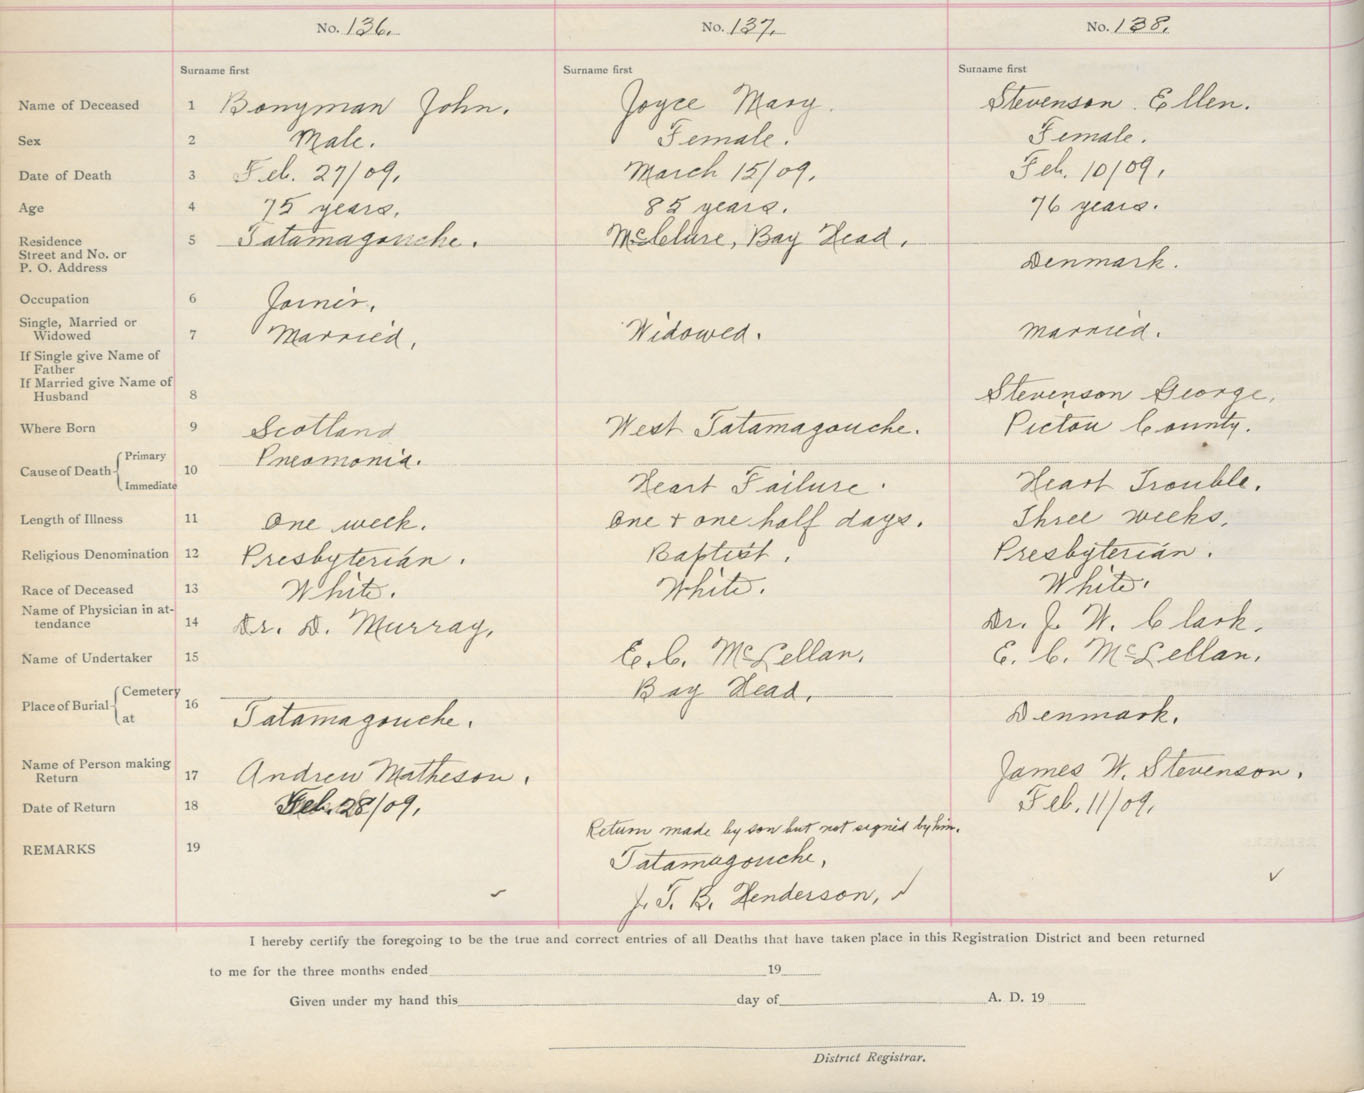 No. 136. No. 137. No. 138.
Surname first Surname first Surname first
Name of Deceased 1 Bonyman John. Joyce Mary. Stevenson Ellen.
Sex 2 Male. Female. Female.
Date of Death 3 Feb. 27/09. March 15/09. Feb. 10/09.
Age 4 75 years. 85 years. 76 years.
Residence 5 Tatamagouche. McClure, Bay Head.
Street and No. or
P. O. Address Denmark.
Occupation 6 Joiner.
Single, Married or
Widowed 7 Married. Widowed. Married.
If Single give Name of
Father
If Married give Name of
Husband 8 Stevenson George.
Where Born 9 Scotland West Tatamagouche. Pictou County.
Primary Pneomonia.
Cause of Death 10
Immediate Heart Failure. Heart Trouble.
Length of Illness 11 One week. One + one half days. Three weeks.
Religious Denomination 12 Presbyterian. Baptist. Presbyterian.
Race of Deceased 13 White. White. White.
Name of Physician in at-
tendance 14 Dr. D. Murray. Dr. J. W. Clark.
Name of Undertaker 15 E. C. McLellan. E. C. McLellan.
Cemetery Bay Head.
Place of Burial 16
at Tatamagouche. Denmark.
Name of Person making
Return 17 Andrew Matheson. James W. Stevenson.
Date of Return 18 Feb. 28/09. Feb. 11/09.
Return made by son but not signed by him.
REMARKS 19 Tatamagouche,
J. T. B. Henderson,
I hereby certify the foregoing to be the true and correct entries of all Deaths that have taken place in this Registration District and been returned
to me for the three months ended 19
Given under my hand this day of A. D. 19
District Registrar.